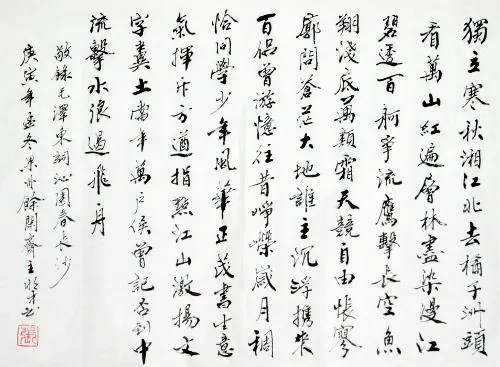 獨立寒秋湘江北去橘子洲頭
看萬山紅遍層林盡染漫江
碧透百舸爭流鷹擊長空魚
翔淺底萬類霜天競自由悵寥
廓問蒼茫大地誰主沉浮攜來
百侶曾游憶往昔崢嶸歲月稠
恰同學少年風華正茂書生意
氣揮斥方遒指點江山激揚文
字糞土當年萬戶侯曾記否到中
流擊水浪遏飛舟
敬錄毛澤東詞沁園春長沙
庚寅年孟冬餘閒齋主書